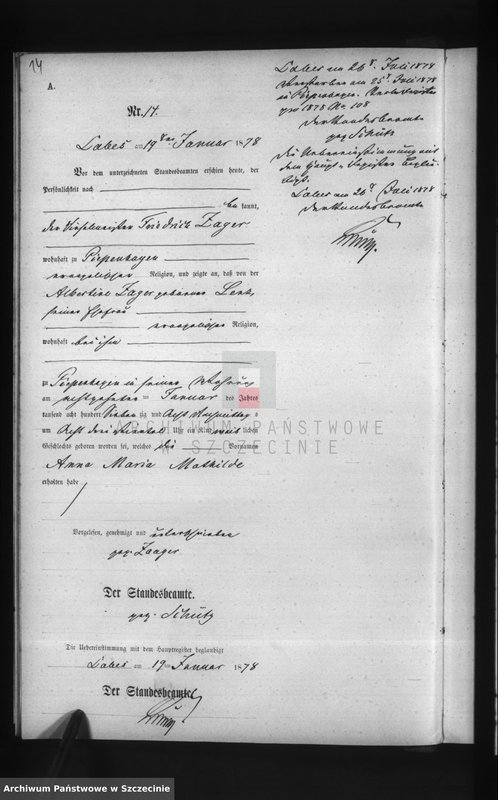 14
A.
Nr. 14.
Labes am 19ten Januar 1878
Vor dem unterzeichneten Standesbeamten erschien heute, der
Persönlichkeit nach
bekannt,
der Friedrich Zager
wohnhaft zu Piepenhagen
evangelischer Religion, und zeigte an, daß von der
Albertine Zager geborenen
seiner Ehefrau
evangelischer Religion,
wohnhaft bei ihm
zu Piepenhagen in seiner Wohnung
am achtzehnten Januar des Jahres
tausend acht hundert sieben zig und acht Nachmittag s
um acht drei viertel Uhr ein Kind weib lichen
Geschlechts geboren worden sei, welches die Vornamen
Anna Maria Mathilde
erhalten habe
Vorgelesen, genehmigt und unterschrieben
gez. Zaager
Der Standesbeamte.
gez. Schütz
Die Uebereinstimmung mit dem Hauptregister beglaubigt
Labes am 19 Januar 1878
Der Standesbeamte.
Labes am 26t Juli 1878
Verstorben am 25t Juli 1878
in Piepenhagen.
pro 1878 No. 108
Der Standesbeamte
gez. Schütz
Die Uebereinstimmung mit
dem Haupt-Register
Labes am 26t Juli 1878
Der Standesbeamte
ARCHIWUM PAŃSTWOWE
W SZCZECINIE
Archiwum Państwowe w Szczecinie